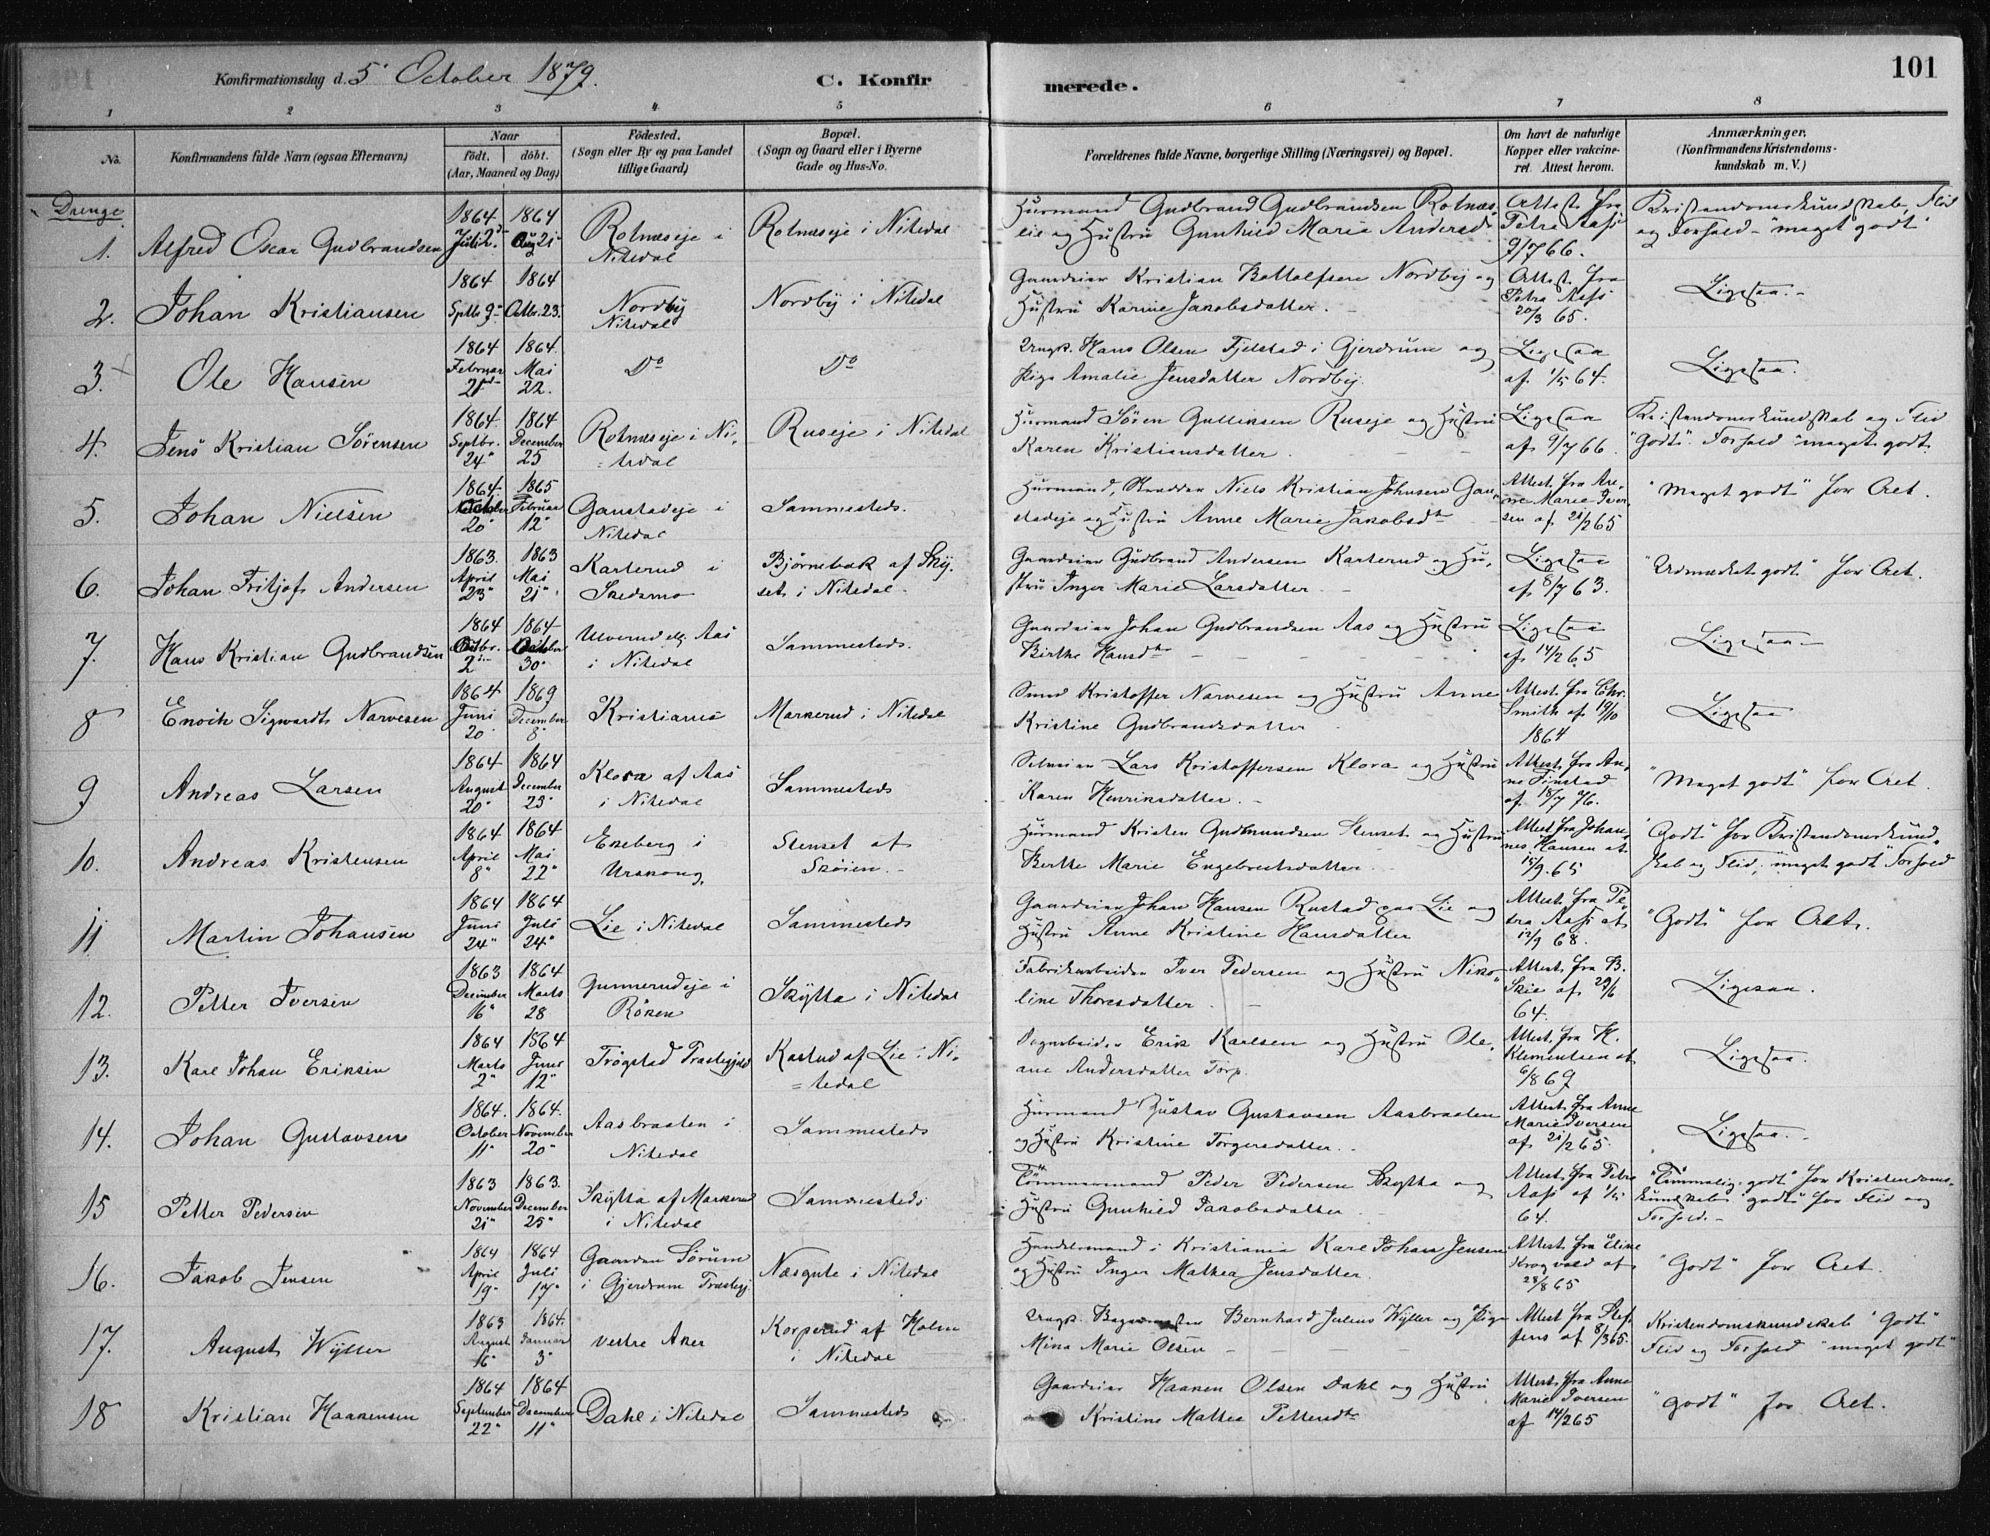 101
Konfirmationsdag d. 5. October 1879.
C. Konfirmerede.
1 2 3 4 5 6 7 8
No.
Konfirmandens fulde Navn (ogsaa Efternavn)
Naar
födt. döbt.
(Aar, Maaned og Dag)
Födested.
(Sogn eller By og paa Landet
tillige Gaard)
Bopæl.
(Sogn og Gaard eller i Byerne
Gade og Hus-No.
Forældrenes fulde Navne, borgerlige Stilling (Næringsvei) og Bopæl.
Om havt de naturlige
Kopper eller vakcine-
ret Attest herom.
Anmærkninger.
(Konfirmandens Kristendoms-
kundskab m. V.)
Drenge
1. Alfred Oscar Gudbrandsen
1864 Juli 2. 1864 Aug 21
Rotnæseje i
Nitedal
Rotnæseje i Nitedal
Husmand Gudbrand Gudbrandsen Rotnæs-
eie og Hustru Gunhild Marie Andersd.
Attest fra
Petra Aass
9/7 66.
Kristendomskundskab, Flid
og Forhold - "maget godt"
2. Johan Kristiansen
1864 Septbr 9 1864 Octbr. 23.
Nordby
Nitedal
Nordby i Nitedal
Gaardeier Kristian Bottolfsen Nordby og
Hustru Karine Jakobsdatter.
Attest fra
Petra Aass
20/3 65.
Ligesaa.
3. Ole Hansen
1864 Februar 21 1864. Mai 22.
Do
Do
Ungk. Hans Olsen Fjelstad i Gjerdrum og
Pige Amalie Jensdatter Nordby.
Ligesaa
af 1/5 64.
Ligesaa.
4. Jens Kristian Sørensen
1864 Septbr. 24 1864 December 25
Rotnæseje i Ni-
tedal
Ruseje i Nitedal
Husmand Søren Gulliksen Ruseje og Hustru
Karen Kristiansdatter.
Ligesaa
af 9/7 66.
Kristendomskundskab og Flid
"Godt". Forhold "maget godt.
5. Johan Nielsen
1864 20 1865 Februar 12
Ganstadeje i
Nitedal
Sammesteds.
Husmand, Skrædder Niels Kristian Johnsen Gan-
stadeje og Hustru Anne Marie Jakobsdtr
Attest fra An-
ne Marie Iver
sen af 21/2 65
"Maget godt" for Alt.
6. Johan Fritjof Andersen
1863. April 23 1863 Mai 21
Karterud i
Skedsmo
Bjørnebæk af Sky-
set i Nitedal.
Gaardeier Gudbrand Andersen Karterud og Hu-
stru Inger Marie Larsdatter.
Ligesaa
af 8/7 63.
"Udmærket godt" for Alt.
7. Hans Kristian Gudbrandsen
1864 Octbr. 2 1864 October 30
Ulverud elg. Aas
i Nitedal
Sammesteds.
Gaardeier Johan Gudbrandsen Aas og Hustru
Birthe Hansdtr
Ligesaa
af 14/2 65
Ligesaa
8 Enoch Sigwardt Narvesen
1864 Juni 20 1869 December 8
Kristiania
Markerud i Nitedal
Smed Kristoffer Narvesen og Hustru Anne
Kristine Gudbrandsdatter
Attest fra Chr.
Smith af 19/10
1864
Ligesaa
9 Andreas Larsen
1864 August 20 1864 December 23
Klora af Aas
i Nitedal
Sammesteds
Selveier Lars Kristoffersen Klora og Hustru
Karen Henriksdatter.
Attest fra An-
ne Tinstad
af 18/7 76.
"Maget godt" for Alt.
10. Andreas Kristensen
1864 April 8 1864 Mai 22
Eneberg i
Urskoug.
Stenset af
Skøien.
Husmand Kristen Gudmundsen Stenset og Hustru
Berthe Marie Engebretsdatter.
Attest fra Johan-
nes Hansen af
15/9. 65
"Godt" for Kristendomskund-
skab og Flid, "maget godt" Forhold
11 Martin Johansen
1864 Juni 24 1864 Juli 24
Lie i Nitedal
Sammesteds
Gaardeier Johan Hansen Rustad paa Lie og
Hustru Anne Kristine Hansdatter
Attest fra Pe-
tra Aass af
12/9 68.
"Godt" for Alt.
12. Petter Iversen
1863 December 16 1864 Marts 28
Gunnerudeje i
Röken
Skytta i Nitedal
Fabrikarbeider Iver Pedersen og Hustru Niko-
line Thoresdatter.
Attest fra B.
Skie af 29/6
64.
Ligesaa.
13. Karl Johan Eriksen
1864 Marts 2 1864 Juni 12
Trøgstad Præstegjeld
Kastud af Lie i Ni-
tedal
Dagarbeider Erik Karlsen og Hustru Ole-
ane Andersdatter Torp.
Attest fra K.
Klementsen af
6/8 69
Ligesaa.
14. Johan Gustavsen
1864. October 11 1864. November 20
Aasbraaten i
Nitedal
Sammesteds
Husmand Gustav Gustavsen Aasbraaten
og Hustru Kristine Torgersdatter.
Attest fra Anne
Marie Iversen
af 21/2 65.
Ligesaa.
15 Petter Pedersen
1863 November 21 1863. December 25
Skytta af Markerud
i Nitedal
Sammesteds
Tömmermand Peder Pedersen Skytta og
Hustru Gunhild Jakobsdatter.
Attest fra Petra
Aass af 1/5
64.
"Temmelig godt" for Kristendoms-
kundskab, "godt" for Flid og
Forhold.
16. Jakob Jensen
1864 April 19 1864 Juli 17
Gaarden Sørum
i Gjerdrum Præstegj.
Næsgute i Nitedal
Handelsmand i Kristiania Karl Johan Jensen
og Hustru Inger Mathea Jensdatter.
Attest fra Eline
Krogvold af
28/8 65
"Godt" for Alt.
17. August Wyller
1863 August 16 1864. Januar 3
Vestre Aker
Korperud af Holm
i Nitedal
Ungk. Bagermester Bernhard Julius Wyller og Pige
Mina Marie Olsen
Attest fra Stef-
fens af 8/3 65.
Kristendomskundskab "Godt"
Flid og Forhold "maget godt"
18 Kristian Haakensen
1864 September 22 1864 December 11
Dahl i Nitedal
Sammesteds
Gaardeier Haaken Olsen Dahl og Hustru
Kristine Mathea Pettersdtr
Attest fra Anne
Marie Iversen
af 14/2 65
"godt" for Alt.